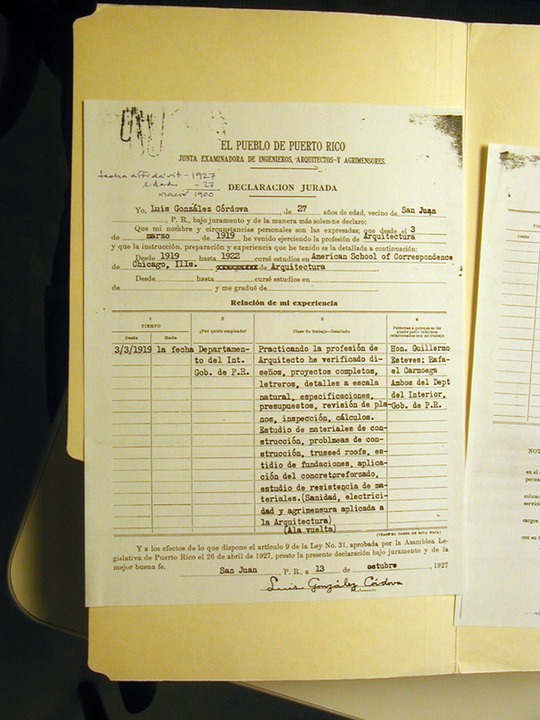 EL PUEBLO DE PUERTO RICO
JUNTA EXAMINADORA DE INGENIEROS, ARQUITECTOS Y AGRIMENSORES.
fecha affidavit - 1927
edad - 27
nació 1900
DECLARACION JURADA
Yo, Luis González Córdova, de 27 años de edad, vecino de San Juan
P. R., bajo juramento y de la manera más solemne declaro:
Que mi nombre y circunstancias personales son las expresadas; que desde el 3
de marzo de 1919 he venido ejerciendo la profesión de Arquitectura
y que la instrucción, preparación y experiencia que he tenido es la detallada a continuación:
Desde 1919 hasta 1922 cursé estudios en American School of Correspondence
Chicago, Ills. de Arquitectura
Desde hasta cursé estudios en
de y me gradué de
Relación de mi experiencia
1 2 3 4
TIEMPO
Desde Hasta
¿Por quién empleado?
Clase de trabajo—Detallado
Personas a quienes se les
puede pedir informes
relacionados con mi trabajo
3/3/1919 la fecha Departamen- Practicando la profesión de Hon. Guillermo
to del Int. Arquitecto he verificado di- Esteves; Rafa-
Gob. de P.R. seños, proyectos completos, el Carmoega
letreros, detalles a escala Ambos del Dept
natural, especificaciones, del Interior,
presupuestos, revisión de pla- Gob. de P.R.
nos, inspección, cálculos.
Estudio de materiales de con-
strucción, problmeas de con-
strucción, trussed roofs, es-
tidio de fundaciones, aplica-
ción del concretoreforzado,
estudio de resistencia de ma-
teriales.(Sanidad, electrici-
dad y agrimensura aplicada a
la Arquitectura)
(Ala vuelta)
Y a los efectos de lo que dispone el artículo 9 de la Ley No. 31, aprobada por la Asamblea Le-
gislativa de Puerto Rico el 26 de abril de 1927, presto la presente declaración bajo juramento y de la
mejor buena fe.
San Juan , P. R., a 13 de octubre , 1927
Luis González Córdova
NOT